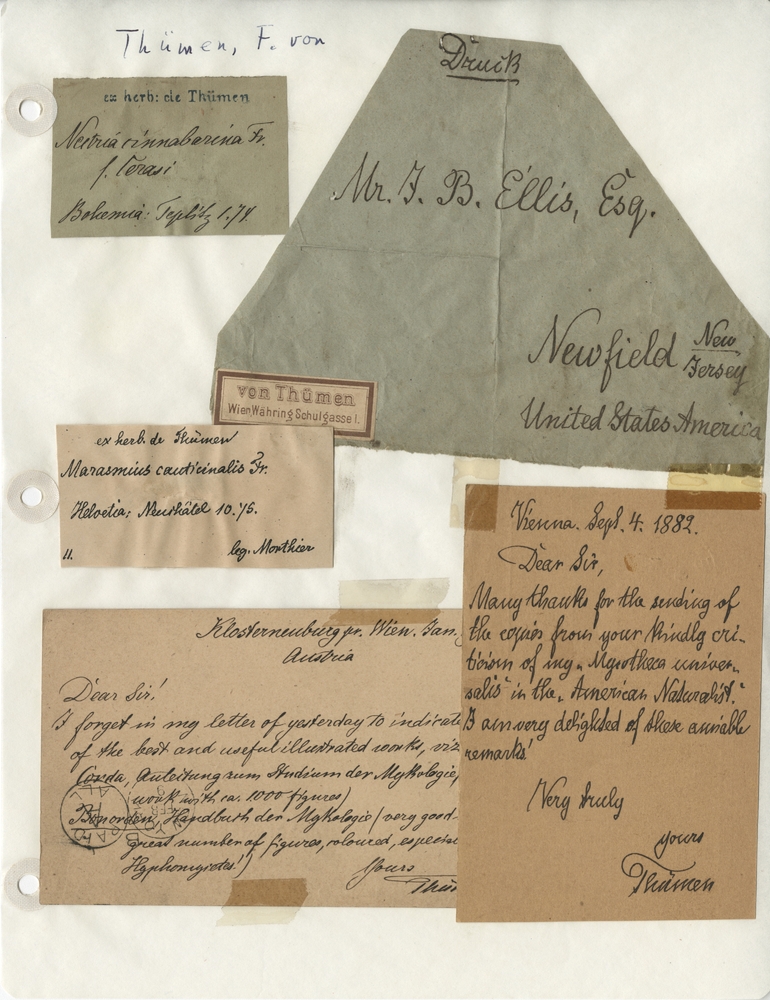 Thümen, F. von
ex herb: de Thümen
Nectria cinnabarina Fr.
f. Cerasi
Bohemia: Teplitz 1.74
Druck
Mr. J. B. Ellis, Esq.
Newfield New Jersey
United States America
von Thümen
Wien, Währing Schulgasse 1.
ex herb. de Thümen
Marasmius cauticinalis Fr.
Helvetia: Neuchâtel 10.75.
11. leg. Morthier
Klosterneuburg pr. Wien. Jan.
Austria
Dear Sir!
I forget in my letter of yesterday to indicate
of the best and useful illustrated works, viz
Corda, Anleitung zum Studium der Mykologie,
(work with ca. 1000 figures)
Bonorden, Handbuch der Mykologie (very good
great number of figures, coloured, especia
Hyphomycetes!)
Yours
Thüm
Vienna. Sept. 4. 1882.
Dear Sir,
Many thanks for the sending of
the copies from your kindly cri-
ticism of my „Mycotheca univer-
salis" in the „American Naturalist."
I am very delighted of these amiable
remarks!
Very truly
yours
Thümen